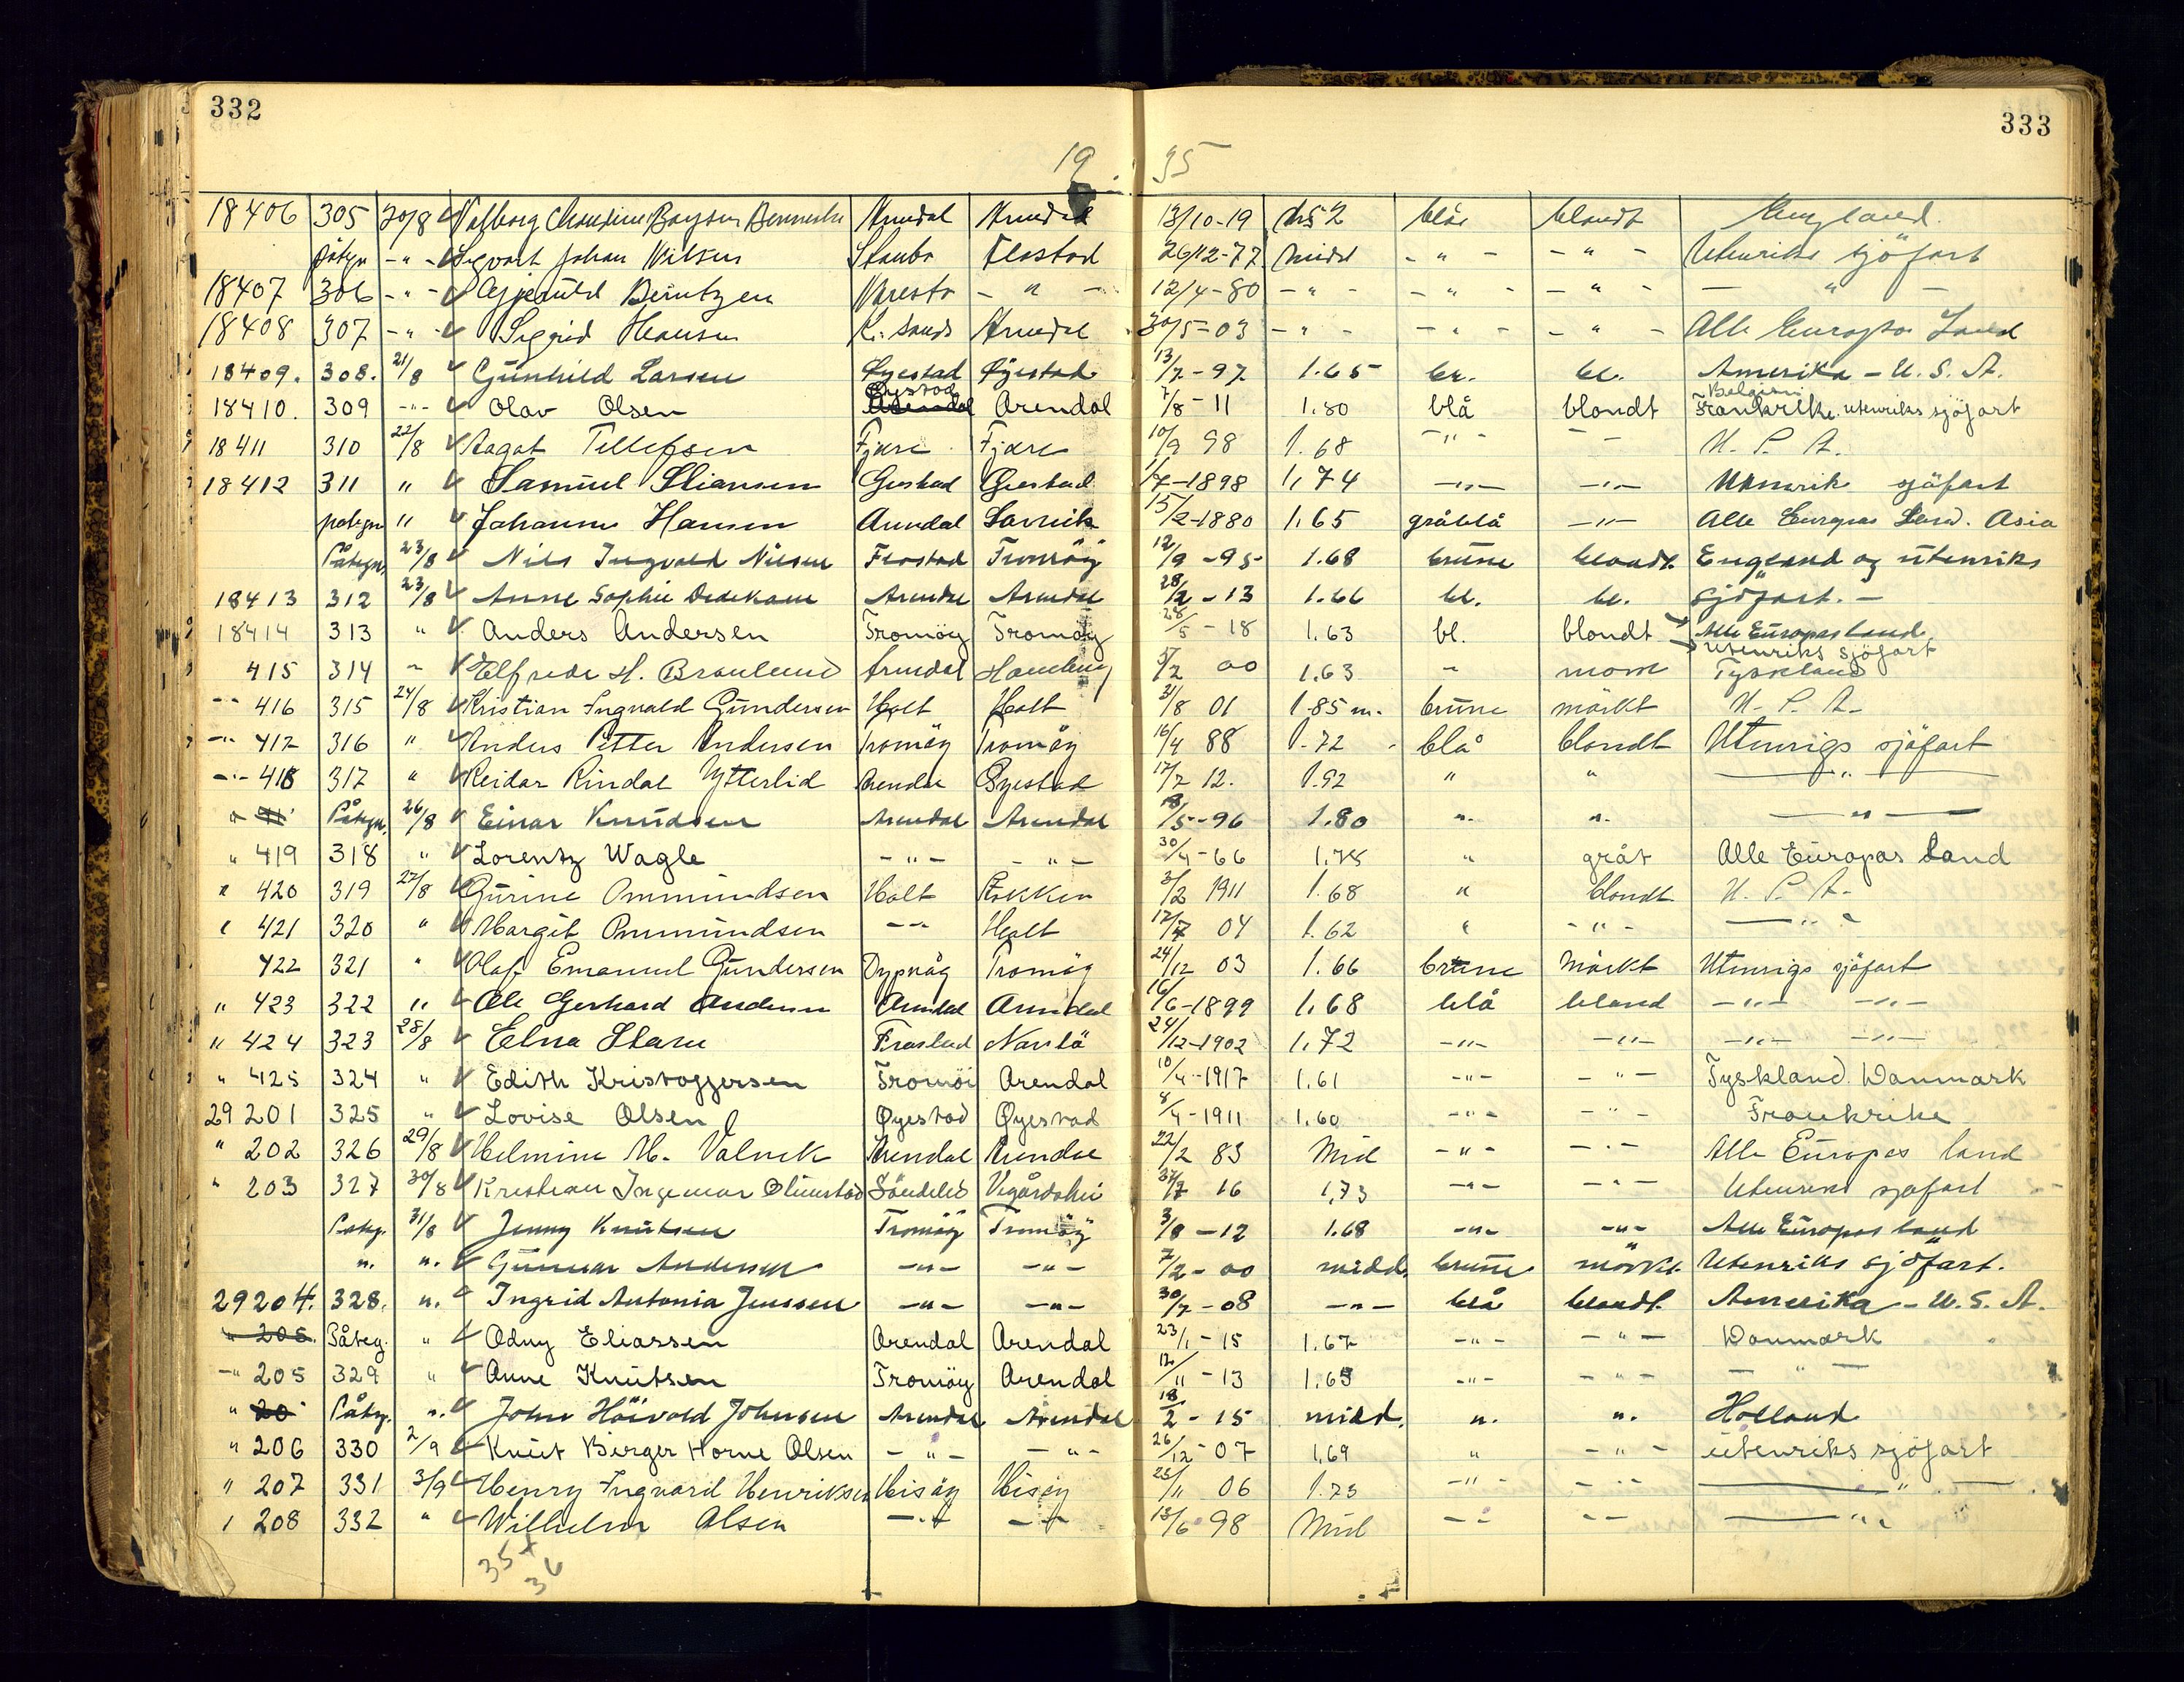 332
333
19 35
18406 305 20/8 Valborg Arendal Arendal 13/10-19 blå blondt England.
påtegn -"- Sigvart Johan Nilsen Staubø Flostad 26/12-77 Midd -"- -"- Utenriks sjöfart
18407 306 -"- Gjerüld Berntzen Narestø -"- 12/4-80 -"- -"- -"- -"-
18408 307 -"- Sigrid Hansen K. sands Arendal 30/5-03 -"- -"- -"- Alle Europas Land
18409. 308. 21/8 Günhild Larsen Øyestad Øyestad 13/7-97 1.65 bl. bl. Amerika - U.S.A.
18410. 309 -"- Olav Olsen Øyestad Arendal Arendal 7/8-11 1.80 blå blondt Belgien Frankrike. utenriks sjöfart
18411 310 22/8 Aagot Tellefsen Fjære Fjære 10/9 98 1.68 -"- - - U.S.A.
18412 311 " Samüel Gjerstad Gjerstad 1/7-1898 1,74 -"- -"- Utenrik sjöfart
påtegn " Johanne Hansen Arendal Larvik 15/2-1880 1,65 gråblå -"- Alle Europas Land. Asia
Påtegn. 23/8 Nils Ingvald Nilsen Flostad Tromöy 12/9-95 1.68 brüne blondt. England og ütenriks
18413 312 23/8 Anne Sophie Dedekam Arendal Arendal 28/2-13 1.66 bl. bl. sjöfart. -
18414 313 " Anders Andersen Tromöy Tromöy 28/5-18 1.63 bl. blondt Alle Europas land, utenriks sjöfart
415 314 " Elfrede H. Arendal Hamburg 00 1.63 " mörk Tyskland
-"- 416 315 24/8 Kristian Ingvald Gündersen Holt Holt 31/8 01 1.85 m. brüne mörkt U.S.A.
-"- 417 316 " Anders Petter Andersen Tromöy Tromöy 16/4 88 1.72 blå blondt Utenrigs sjöfart
-"- 418 317 " Reidar Rindal Ytterlid Arendal Øyestad 17/7 12. 1.92 " " -"-
" Påtegn. 26/8 Einar Knüdsen Arendal Arendal 18/5-96 1.80 ". ". -"-
" 419 318 " Lorentz Wagle -"- -"- 30/4-66 1,78 " gråt Alle Europas Land
" 420 319 27/8 Gürine Ommündsen Holt Stokken 3/2 1911 1.68 " blondt U.S.A.
" 421 320 " Margit Ommündsen -"- Holt 17/7 04 1.62 " -"- -"-
422 321 " Olaf Emanuel Gündersen Dypvåg Tromöy 24/12 03 1.66 brüne Mörkt Utenrigs sjöfart
" 423 322 " Ole Gerhard Andersen Arendal Arendal 16/6-1899 1,68 blå blond -"- -"-
" 424 323 28/8 Elna Flostad 24/12-1902 1,72 -"- -"- -"- -"-
" 425 324 " Edith Kristoffersen Tromöi Arendal 10/4-1917 1,61 -"- -"- Tyskland. Danmark
29201 325 " Lovise Olsen Øyestad Øyestad 8/4-1911 1.60 -"- -"- Frankrike
" 202 326 29/8 Helmine M. Valnek Arendal Arendal 22/2 83 Mid -"- -"- Alle Europas land
" 203 327 30/8 Kristian Ingemar Söndeled Vegårdshei 16 1,73 -"- -"- Utenriks sjøfart
Påteg. 31/8 Jenny Knütsen Tromöy Tromöy 3/8-12 1.68 -"- -"- Alle Europas land
". ". Günnar Andersen -"- -"- 7/2-00 midd. brüne mörkt Utenriks sjöfart.
29204. 328. ". Ingrid Antonia Jenssen -"- -"- 30/7-08 -"- blå blondt. Amerika - U.S.A.
" 205. Påteg. " Odny Eliassen Arendal Arendal 23/1-15 1.67 -"- -"- Danmark
-"- 205 329 " Anne Knütsen Tromöy Arendal 12/11-13 1.63 -"- -"- -"-
" 20 Påteg. ". John Höivold Johnsen Arendal Arendal 18/2-15 midd. ". ". Holland
" 206 330 2/9 Knüt Birger Horne Olsen -"- -"- 26/12-07 1,69 " -"- ütenriks sjöfart
" 207 331 3/9 Henry Ingvard Henriksen Hisöy Hisöy 23/11 06 1.73 -"- -"- -"-
" 208 332 " Wilhelm Olsen -"- -"- 13/6 98 Mid -"- -"- -"-
35 +
36